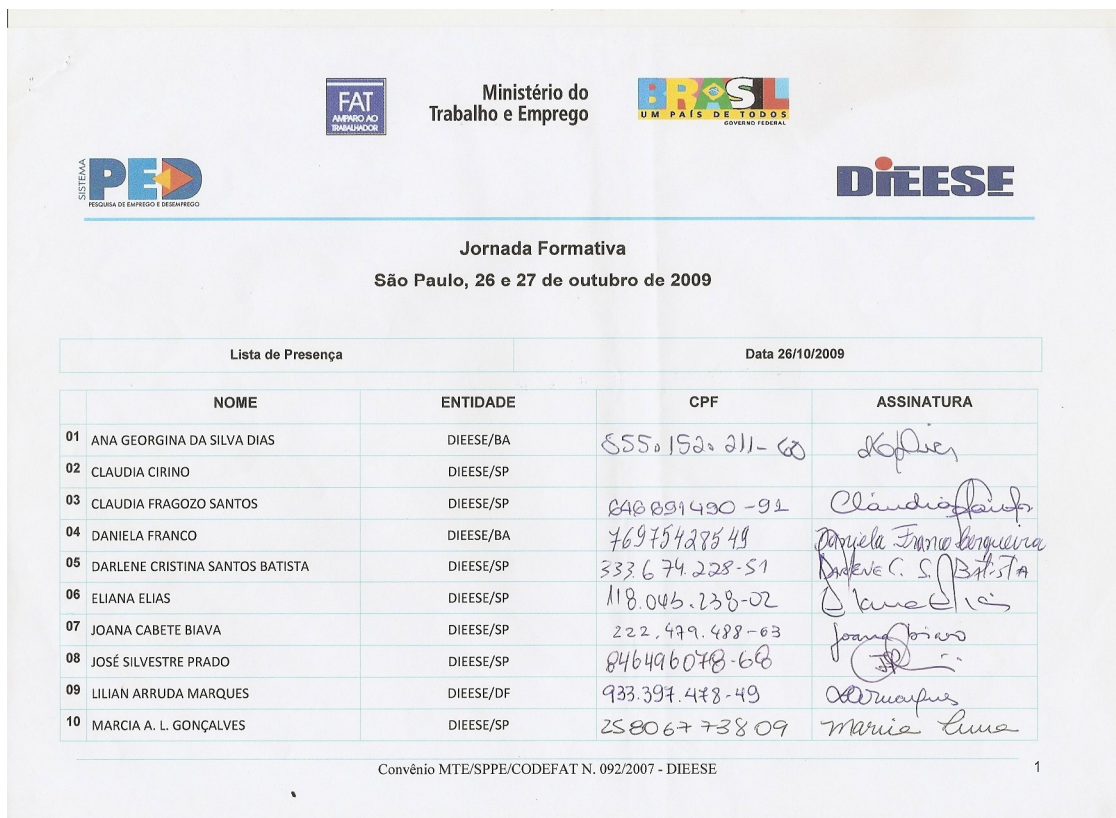 FAT
AMPARO AO
TRABALHADOR
Ministério do
Trabalho e Emprego
BRASIL
UM PAÍS DE TODOS
GOVERNO FEDERAL
SISTEMA
PED
PESQUISA DE EMPREGO E DESEMPREGO
DIEESE
Jornada Formativa
São Paulo, 26 e 27 de outubro de 2009
Lista de Presença Data 26/10/2009
NOME ENTIDADE CPF ASSINATURA
01 ANA GEORGINA DA SILVA DIAS DIEESE/BA 855.152.211-60
02 CLAUDIA CIRINO DIEESE/SP
03 CLAUDIA FRAGOZO SANTOS DIEESE/SP Cláudia
04 DANIELA FRANCO DIEESE/BA 76975428549 Daniela Franco Cerqueira
05 DARLENE CRISTINA SANTOS BATISTA DIEESE/SP 333.674.228-51 DARLENE C. S. BATISTA
06 ELIANA ELIAS DIEESE/SP 118.045.238-02 Eliana Elias
07 JOANA CABETE BIAVA DIEESE/SP 222.479.488-63 Joana Biava
08 JOSÉ SILVESTRE PRADO DIEESE/SP 846496078-68
09 LILIAN ARRUDA MARQUES DIEESE/DF 933.397.478-49
10 MARCIA A. L. GONÇALVES DIEESE/SP 25806773809 Marcia
Convênio MTE/SPPE/CODEFAT N. 092/2007 - DIEESE 1